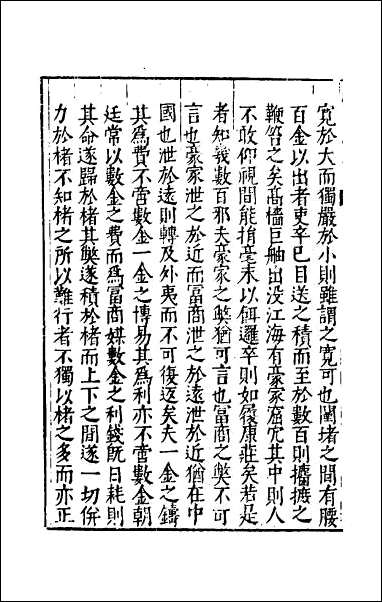 寛於大而獨嚴於小則雖謂之寛可也闤堵之間有腰
百金以出者吏辛已目送之積而至於數百則攟摭之
鞭笞之矣高檣巨舳出没江海有豪家窟宂其中則人
不敢仰視間能捎毫末以餌邏卒則如履康莊矣若是
者知幾數百邪夫豪家之弊猶可言也富商之弊不可
言也豪家泄之於近而富商泄之於遠泄於近猶在中
國也泄於遠則轉及外夷而不可復返矣夫一金之鑄
其為費不啻數金一金之博易其為利亦不啻數金朝
廷常以數金之費而為富商媒數金之利錢既日耗則
其命遂歸於楮其弊遂積於楮而上下之間遂一切併
力於楮不知楮之所以難行者不獨以楮之多而亦正